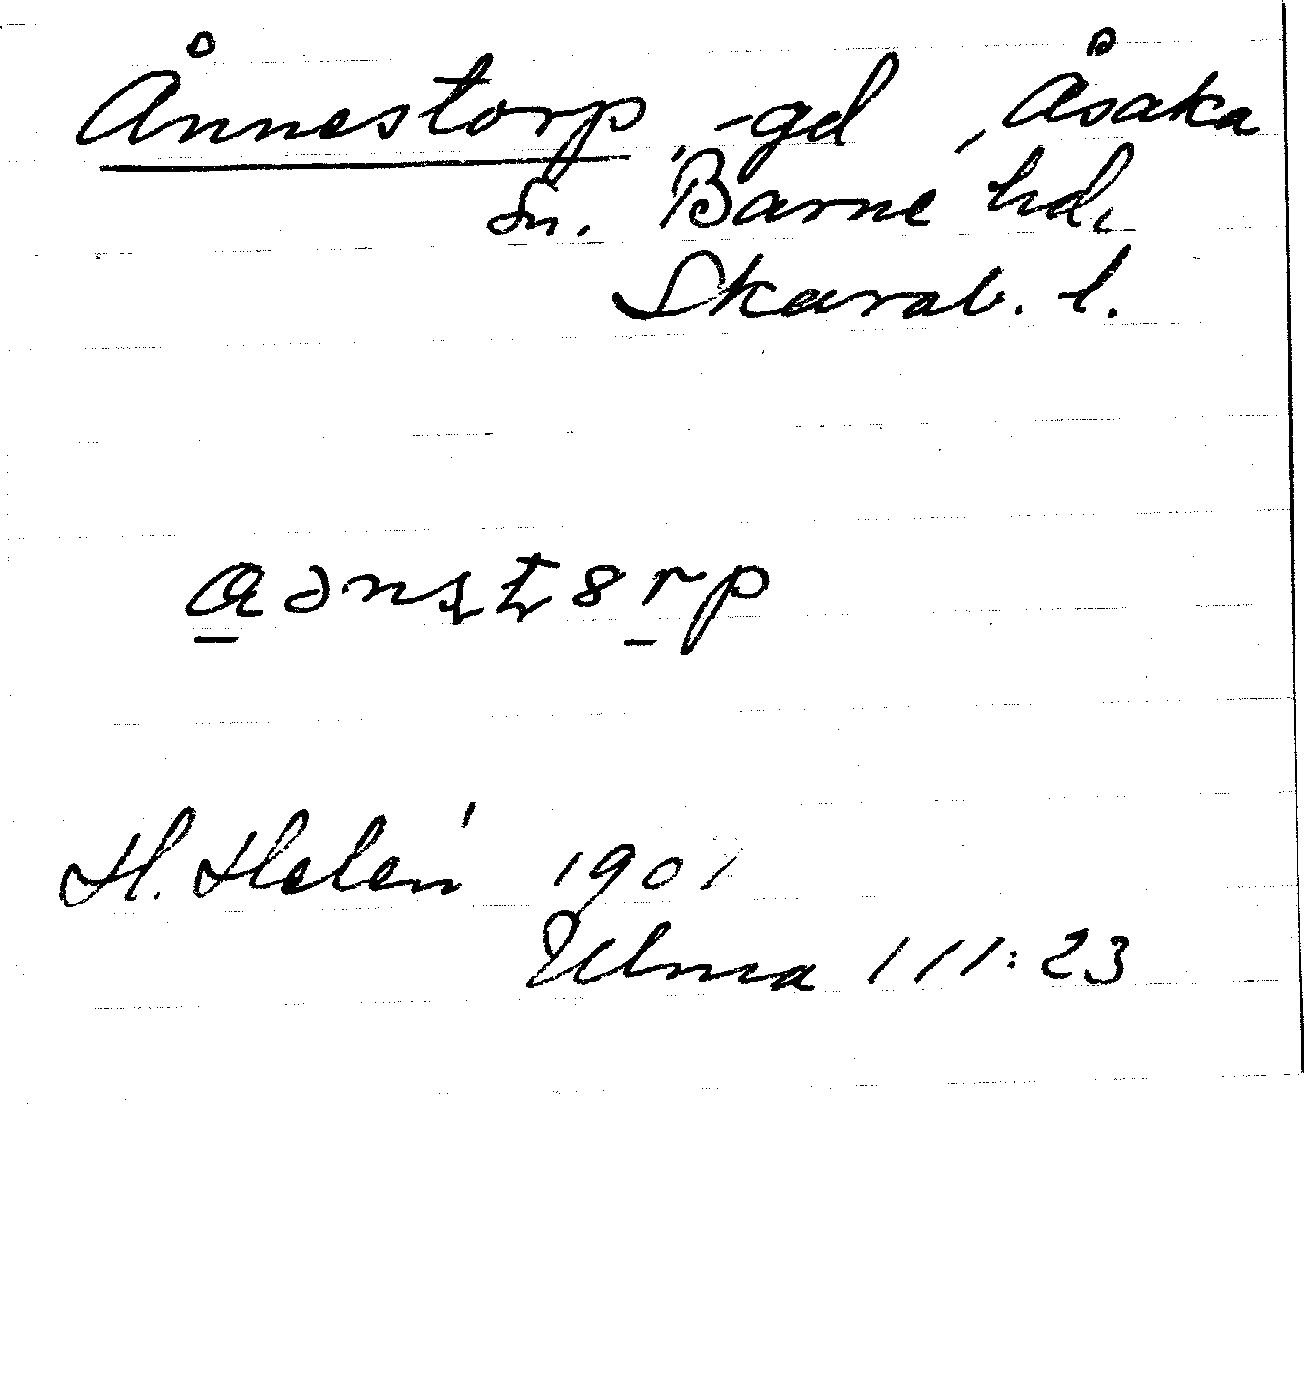 Ånnestorp, -gd, Åsaka
sn. Barne hd,
Skarab. l.
H. Helén 1901
Ulma 111:23